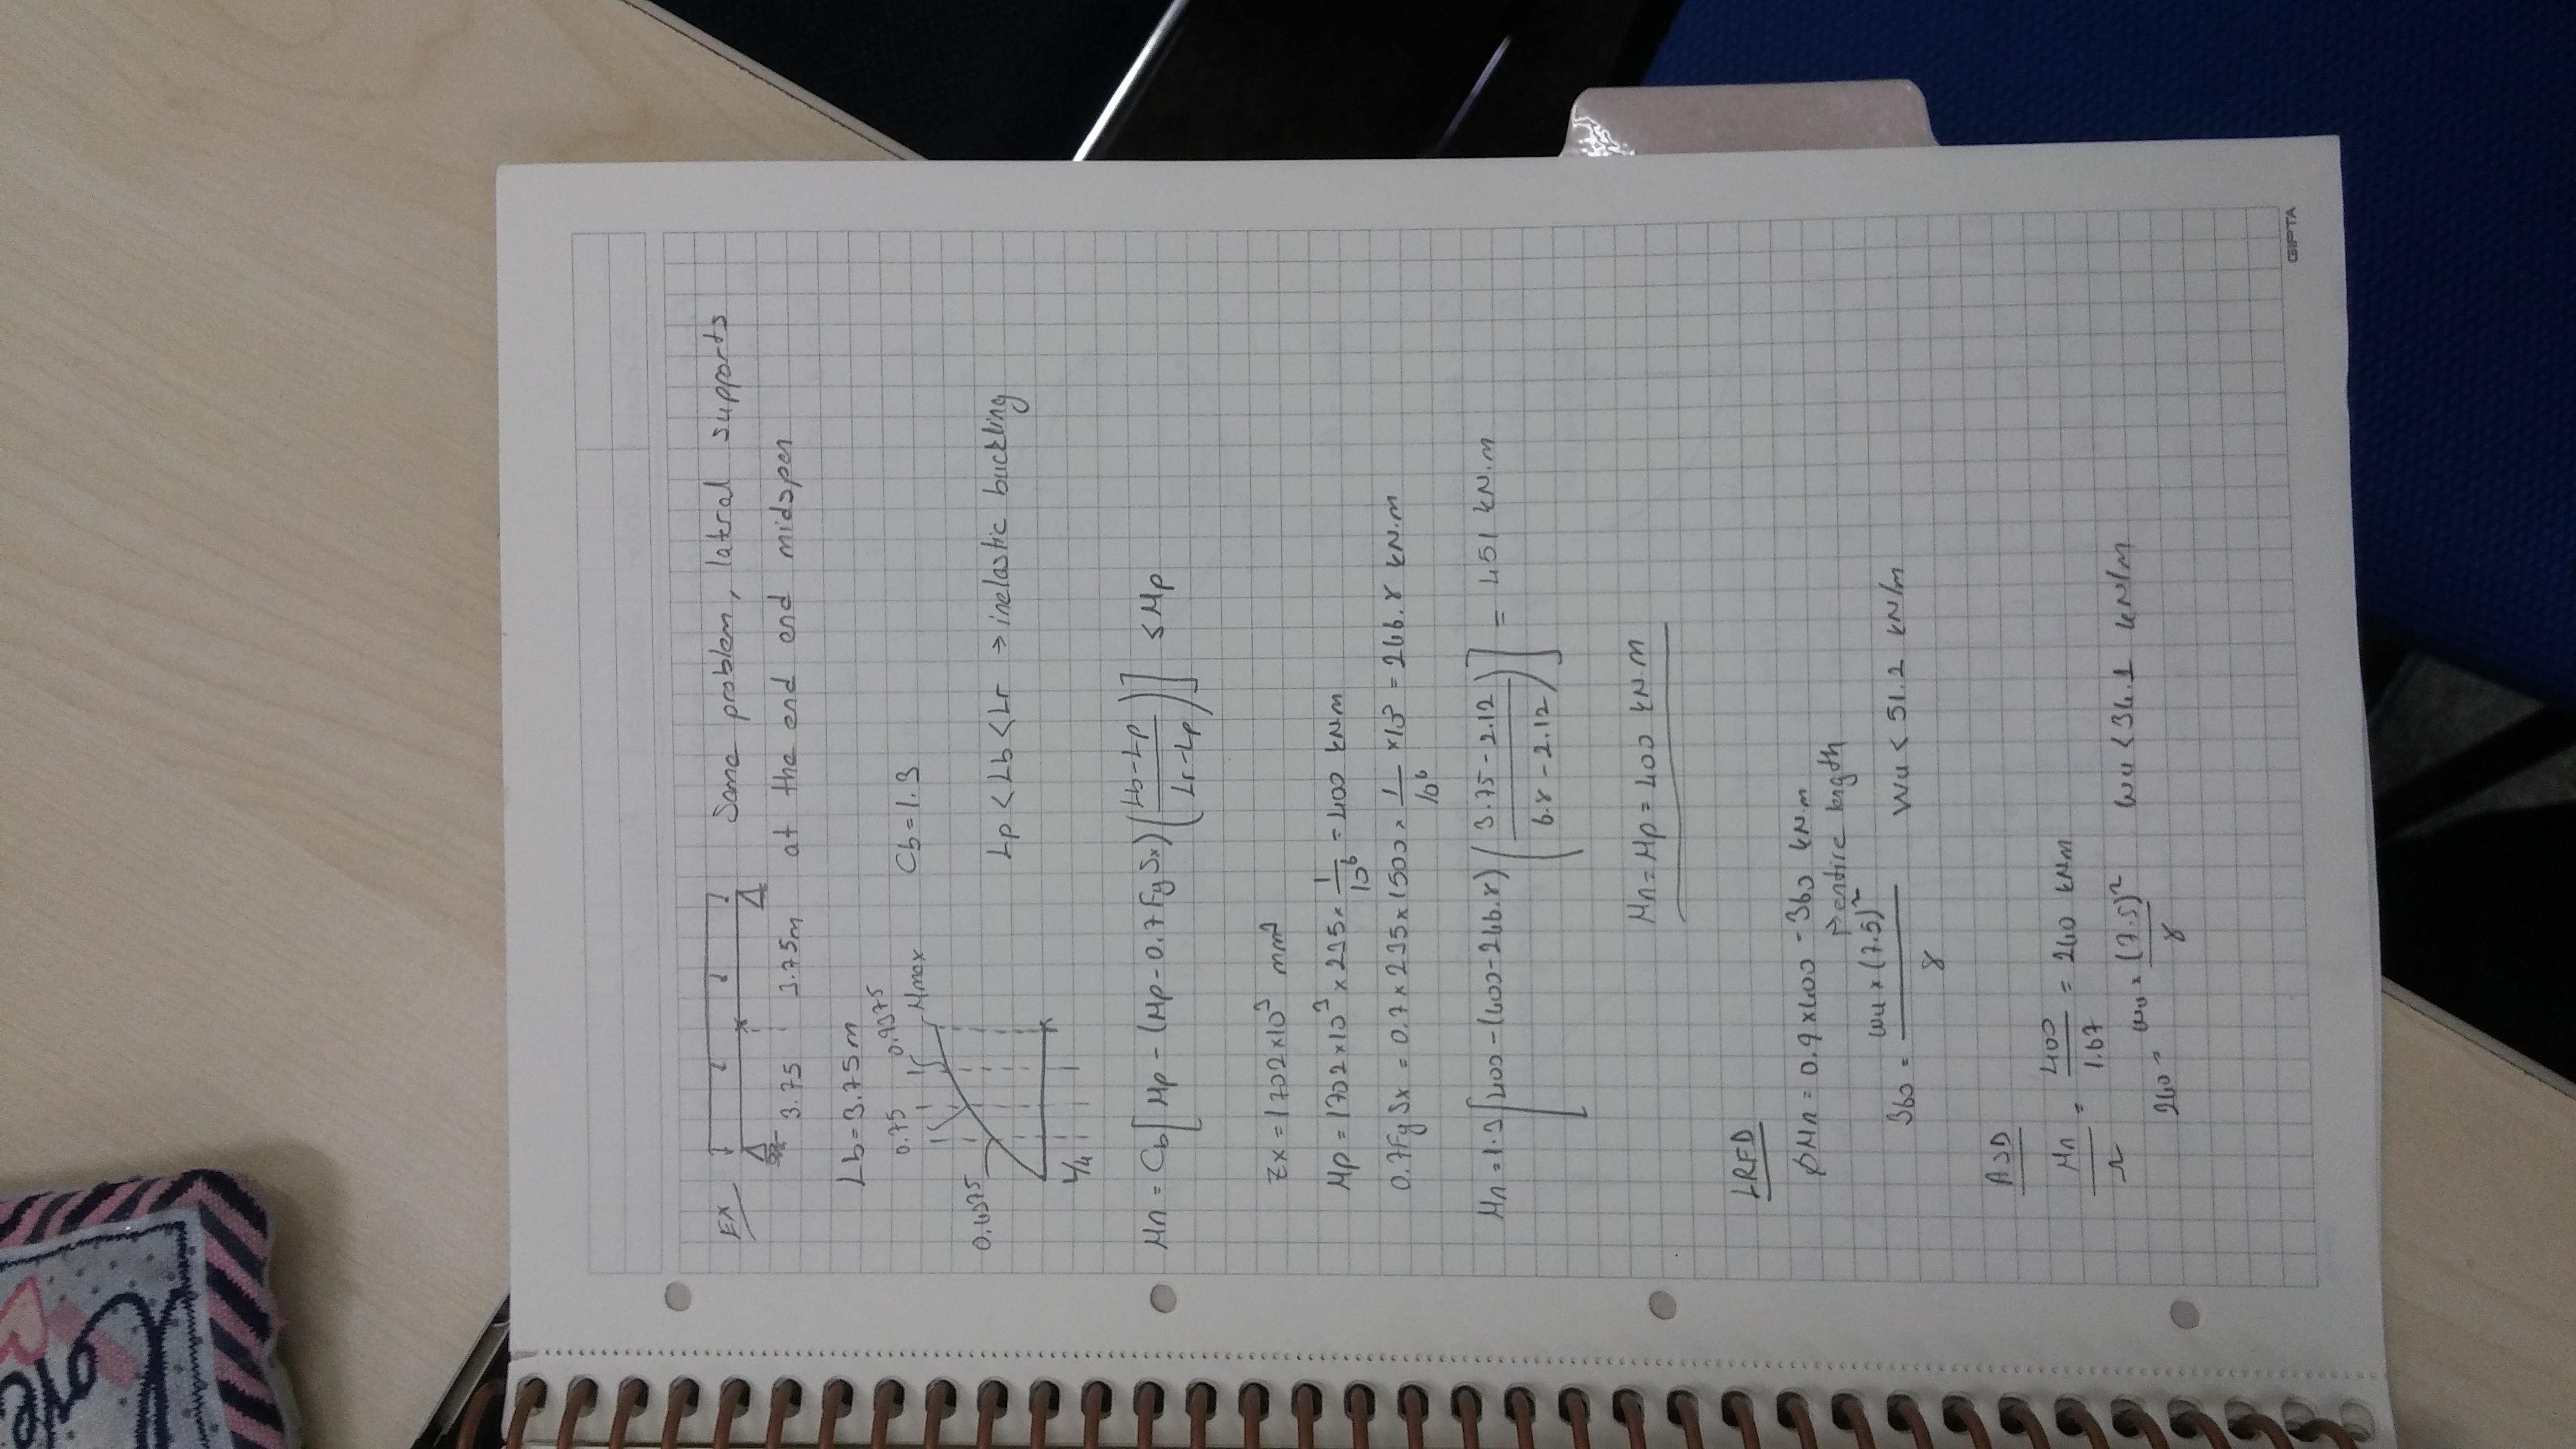 EX Same problem, lateral supports
3.75 3.75m at the end end midspan
Lb=3.75m
0.75 0.9375
Mmax Cb=1.3
0.4375
Lp < Lb < Lr → inelastic buckling
L/4
Mn = Cb[Mp - (Mp - 0.7FySx)((Lb-Lp)/(Lr-Lp))] ≤ Mp
Zx = 1702×10³ mm³
Mp = 1702×10³ × 235 × 1/10⁶ = 400 kN.m
0.7FySx = 0.7×235×1500 × 1/10⁶ ×10³ = 246.8 kN.m
Mn = 1.3[400-(400-246.8)((3.75-2.12)/(6.8-2.12))] = 451 kN.m
Mn = Mp = 400 kN.m
LRFD
ϕMn = 0.9×400 = 360 kN.m
→ entire length
360 = wu×(7.5)²/8 Wu < 51.2 kN/m
ASD
Mn/Ω = 400/1.67 = 240 kNm
240 = wu × (7.5)²/8 wu < 34.1 kN/m
GIPTA